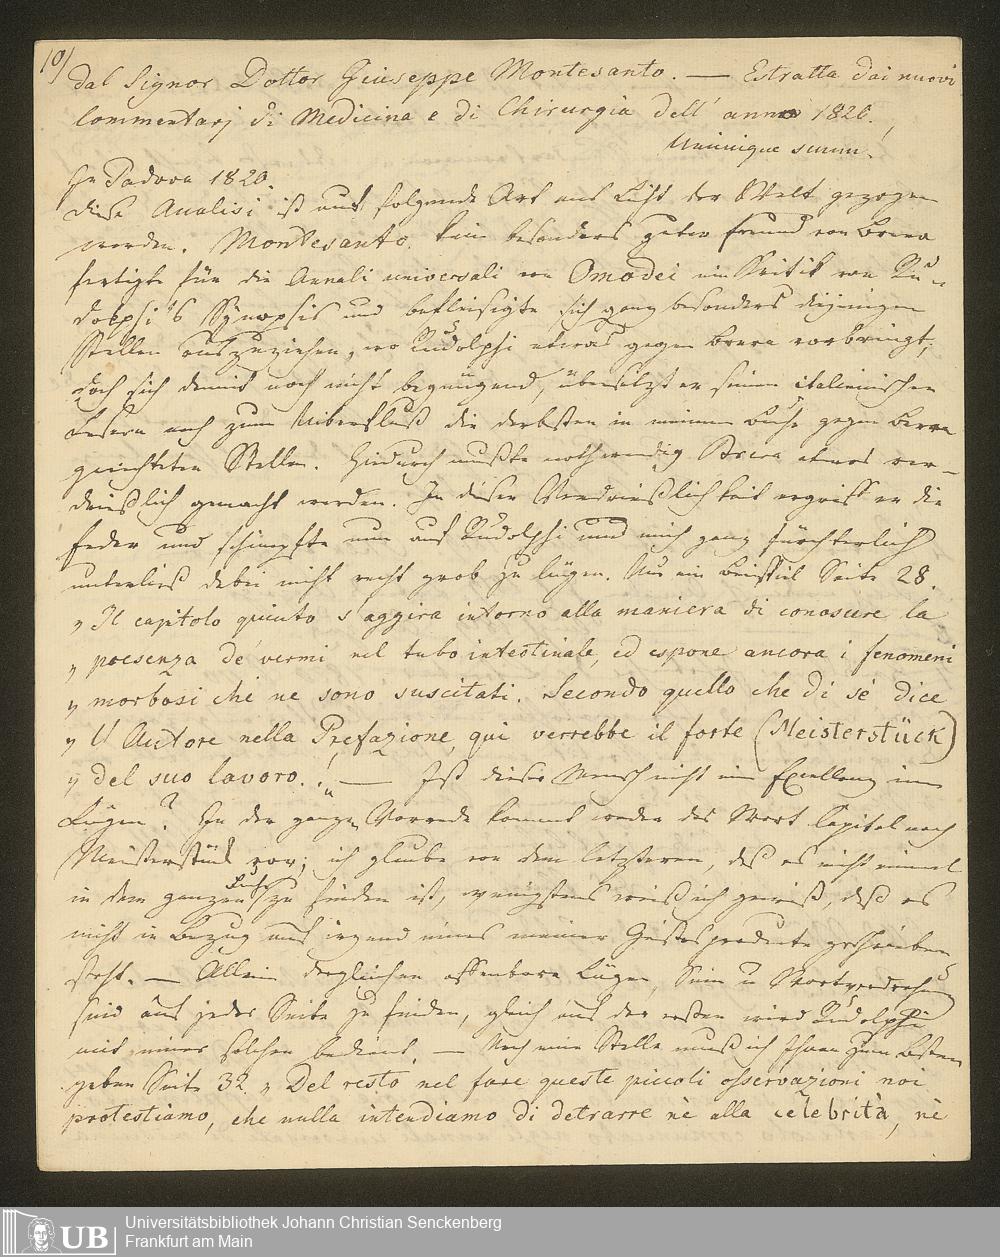 10/
dal Signor Dottor Giuseppe Montesanto. — Estratta dai nuovi
Commentarj di Medicina e di Chirurgia dell' anno 1820.,
summ.
In Padova 1820.
Diese Analisi ist auf folgende Art ans Licht der Welt gezogen
worden. Montesanto. kein besonders guter Freund von Brera
fertigte für die Annali universali von Omodei eine Kritik von Ru-
dolphi's Synopsis und befleisigte sich ganz besonders diejenigen
Stellen auszuziehen, wo Rudolphi etwas gegen Brera vorbringt,
doch sich damit noch nicht begnügend, übersetzt er seinen italienischen
Lesern noch zum Uiberfluß die derbsten in meinem Buche gegen Brera
gerichteten Stellen. Hiedurch mußte nothwendig Brera etwas ver-
drießlich gemacht werden. In dieser Verdrießlichkeit ergriff er die
Feder und schimpfte nun auf Rudolphi und mich ganz fürchterlich
unterließ dabei nicht recht grob zu lügen. Nur ein Beispiel Seite 28.
„ Il capitolo quinto s'aggira intorno alla maniera di conoscere la
„ presenza de' vermi nel tubo intestinale, ed espone ancora i fenomeni
„ morbosi che ne sono suscitati. Secondo quello che di sè dice
„ l'Autore nella Prefazione, qui verrebbe il forte (Meisterstück)
„ del suo lavoro. „ — Ist dieser Mensch nicht eine Excellenz im
Lügen? In der ganzen Vorrede kommt weder das Wort Capitel noch
Meisterstück vor; ich glaube von dem letzteren, daß es nicht einmal
in dem ganzen Buche zu finden ist, wenigstens weiß ich gewiß, daß es
nicht in Bezug auf irgend eines meiner Geistesproducte geschrieben
steht. — Allein dergleichen offenbare Lügen, Sinn u Wortverdrehung
sind auf jeder Seite zu finden, gleich auf der ersten wird Rudolphi
mit einer solchen bedient. — Noch eine Stelle muß ich Ihnen zum Besten
geben Seite 32. „ Del resto nel fare queste piccoli osservazioni noi
protestiamo, che nulla intendiamo di detrarre nè alla celebrità, nè
UB
Universitätsbibliothek Johann Christian Senckenberg
Frankfurt am Main